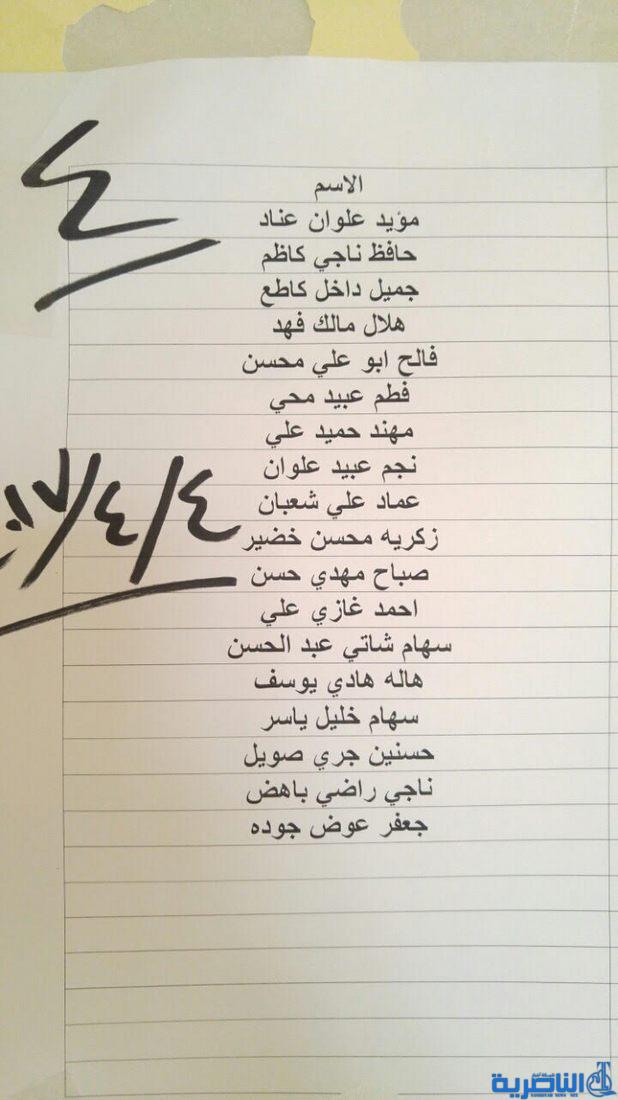 ٤
الاسم
مؤيد علوان عناد
حافظ ناجي كاظم
جميل داخل كاطع
هلال مالك فهد
فالح ابو علي محسن
فطم عبيد محي
مهند حميد علي
نجم عبيد علوان
عماد علي شعبان
زكريه محسن خضير
صباح مهدي حسن
احمد غازي علي
سهام شاتي عبد الحسن
هاله هادي يوسف
سهام خليل ياسر
حسنين جري صويل
ناجي راضي باهض
جعفر عوض جوده
٤/٤/٠١٧
الناصرية